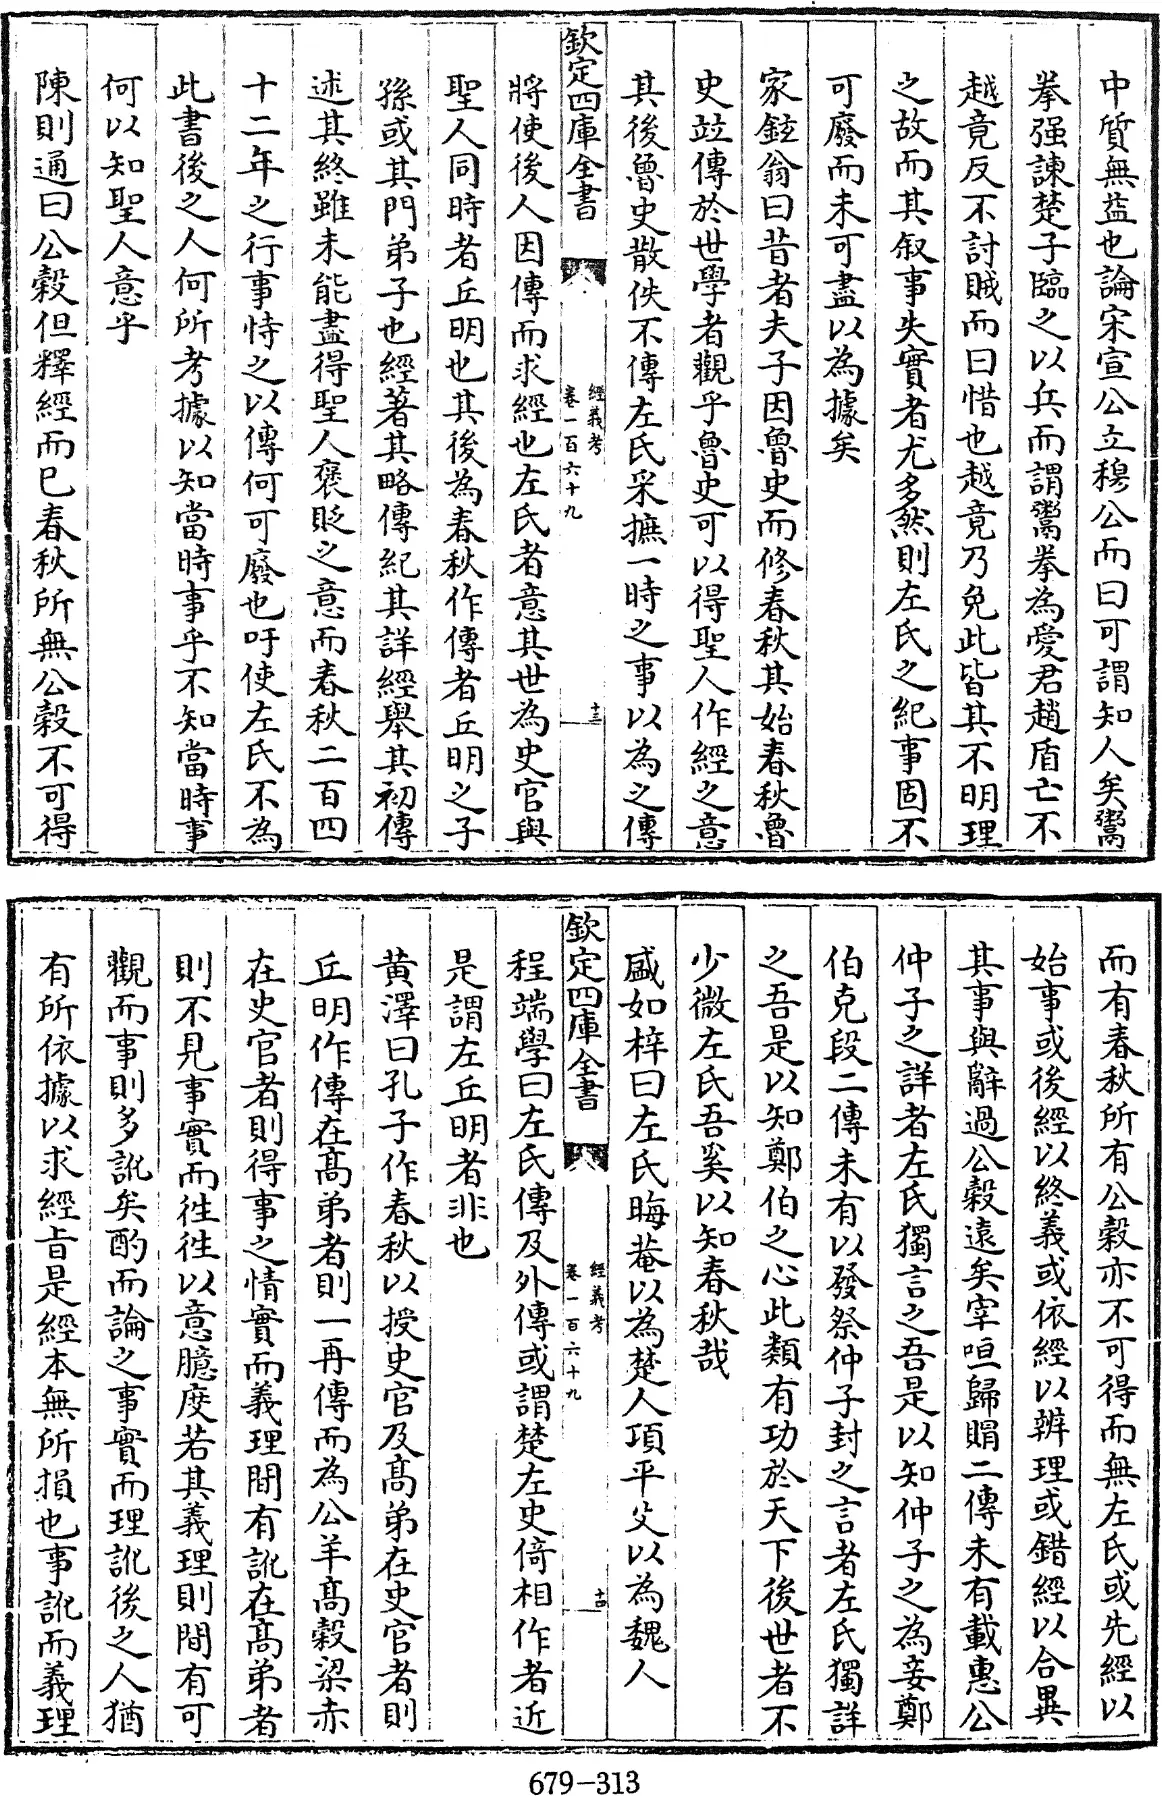 中質無益也論宋宣公立穆公而曰可謂知人矣鬻
拳强諫楚子臨之以兵而謂鬻拳為愛君趙盾亡不
越竟反不討賊而曰惜也越竟乃免此皆其不明理
之故而其叙事失實者尤多然則左氏之紀事固不
可廢而未可盡以為據矣
家鉉翁曰昔者夫子因魯史而修春秋其始春秋魯
史竝傳於世學者觀乎魯史可以得聖人作經之意
其後魯史散佚不傳左氏采摭一時之事以為之傳
欽定四庫全書
經義考
卷一百六十九
十三
將使後人因傳而求經也左氏者意其世為史官與
聖人同時者丘明也其後為春秋作傳者丘明之子
孫或其門弟子也經著其略傳紀其詳經舉其初傳
述其終雖未能盡得聖人褒貶之意而春秋二百四
十二年之行事恃之以傳何可廢也吁使左氏不為
此書後之人何所考據以知當時事乎不知當時事
何以知聖人意乎
陳則通曰公穀但釋經而已春秋所無公穀不可得
而有春秋所有公穀亦不可得而無左氏或先經以
始事或後經以終義或依經以辨理或錯經以合異
其事與辭過公穀遠矣宰咺歸賵二傳未有載惠公
仲子之詳者左氏獨言之吾是以知仲子之為妾鄭
伯克段二傳未有以發祭仲子封之言者左氏獨詳
之吾是以知鄭伯之心此類有功於天下後世者不
少微左氏吾奚以知春秋哉
盛如梓曰左氏晦菴以為楚人項平父以為魏人
欽定四庫全書
經義考
卷一百六十九
十四
程端學曰左氏傳及外傳或謂楚左史倚相作者近
是謂左丘明者非也
黄澤曰孔子作春秋以授史官及髙弟在史官者則
丘明作傳在髙弟者則一再傳而為公羊髙穀梁赤
在史官者則得事之情實而義理間有訛在髙弟者
則不見事實而徃徃以意臆度若其義理則間有可
觀而事則多訛矣酌而論之事實而理訛後之人猶
有所依據以求經旨是經本無所損也事訛而義理
679-313